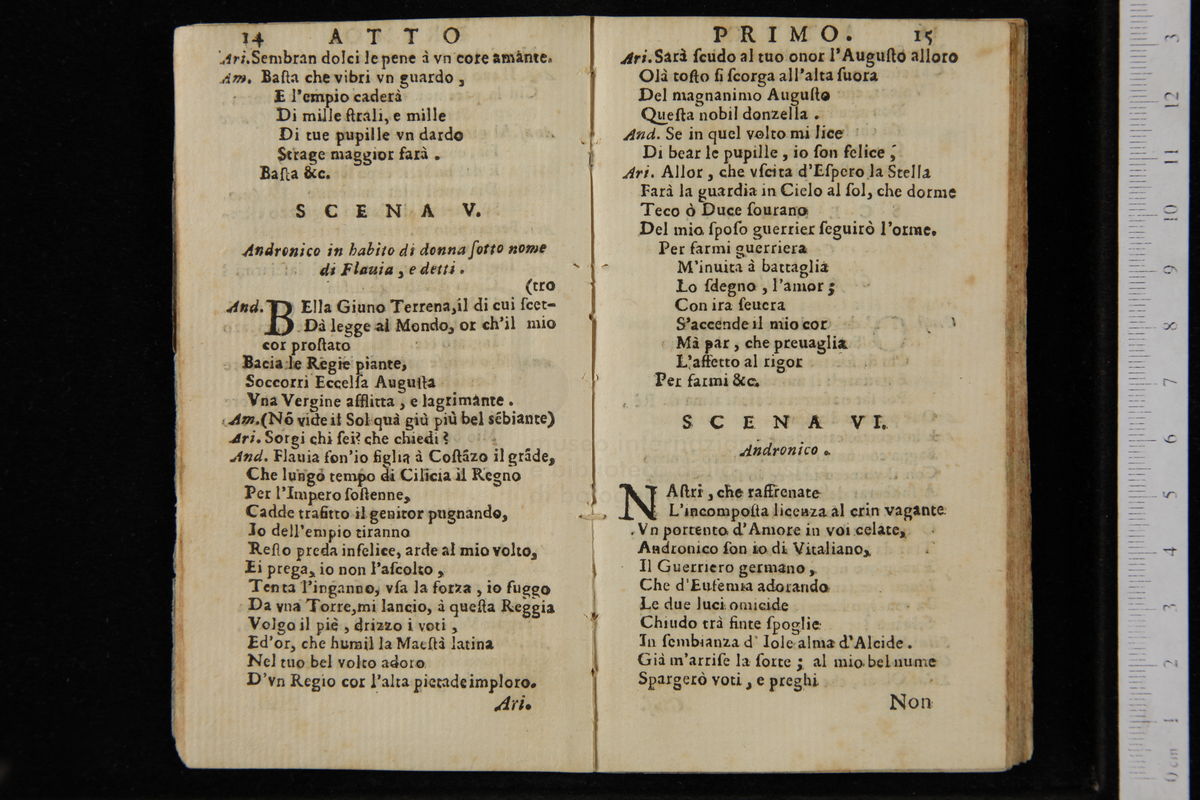 14 ATTO
Ari. Sembran dolci le pene à vn core amante.
Am. Baſta che vibri vn guardo,
E l'empio caderà
Di mille ſtrali, e mille
Di tue pupille vn dardo
Strage maggior farà.
Baſta &c.
SCENA V.
Andronico in habito di donna ſotto nome
di Flauia, e detti.
(tro
And. BElla Giuno Terrena, il di cui ſcet-
Dà legge al Mondo, or ch'il mio
cor proſtato
Bacia le Regie piante,
Soccorri Eccelſa Auguſta
Vna Vergine afflitta, e lagrimante.
Am. (Nõ vide il Sol quà giù più bel sẽbiante)
Ari. Sorgi chi ſei? che chiedi?
And. Flauia ſon'io figlia à Coſtãzo il grãde,
Che lungo tempo di Cilicia il Regno
Per l'Impero ſoſtenne,
Cadde trafitto il genitor pugnando,
Io dell'empio tiranno
Reſto preda infelice, arde al mio volto,
Ei prega, io non l'aſcolto,
Tenta l'inganno, vſa la forza, io fuggo
Da vna Torre, mi lancio, à queſta Reggia
Volgo il piè, drizzo i voti,
Ed'or, che humil la Maeſtà latina
Nel tuo bel volto adoro
D'vn Regio cor l'alta pietade imploro.
Ari.
PRIMO. 15
Ari. Sarà ſcudo al tuo onor l'Auguſto alloro
Olà toſto ſi ſcorga all'alta ſuora
Del magnanimo Auguſto
Queſta nobil donzella.
And. Se in quel volto mi lice
Di bear le pupille, io ſon felice;
Ari. Allor, che vſcita d'Eſpero la Stella
Farà la guardia in Cielo al ſol, che dorme
Teco ò Duce ſourano
Del mio ſpoſo guerrier ſeguirò l'orme.
Per farmi guerriera
M'inuita à battaglia
Lo ſdegno, l'amor;
Con ira ſeuera
S'accende il mio cor
Mà par, che preuaglia
L'affetto al rigor
Per farmi &c.
SCENA VI.
Andronico.
NAſtri, che raffrenate
L'incompoſta licenza al crin vagante
Vn portento d'Amore in voi celate,
Andronico ſon io di Vitaliano,
Il Guerriero germano,
Che d'Eufemia adorando
Le due luci omicide
Chiudo trà finte ſpoglie
In ſembianza d'Iole alma d'Alcide.
Già m'arriſe la ſorte; al mio bel nume
Spargerò voti, e preghi
Non